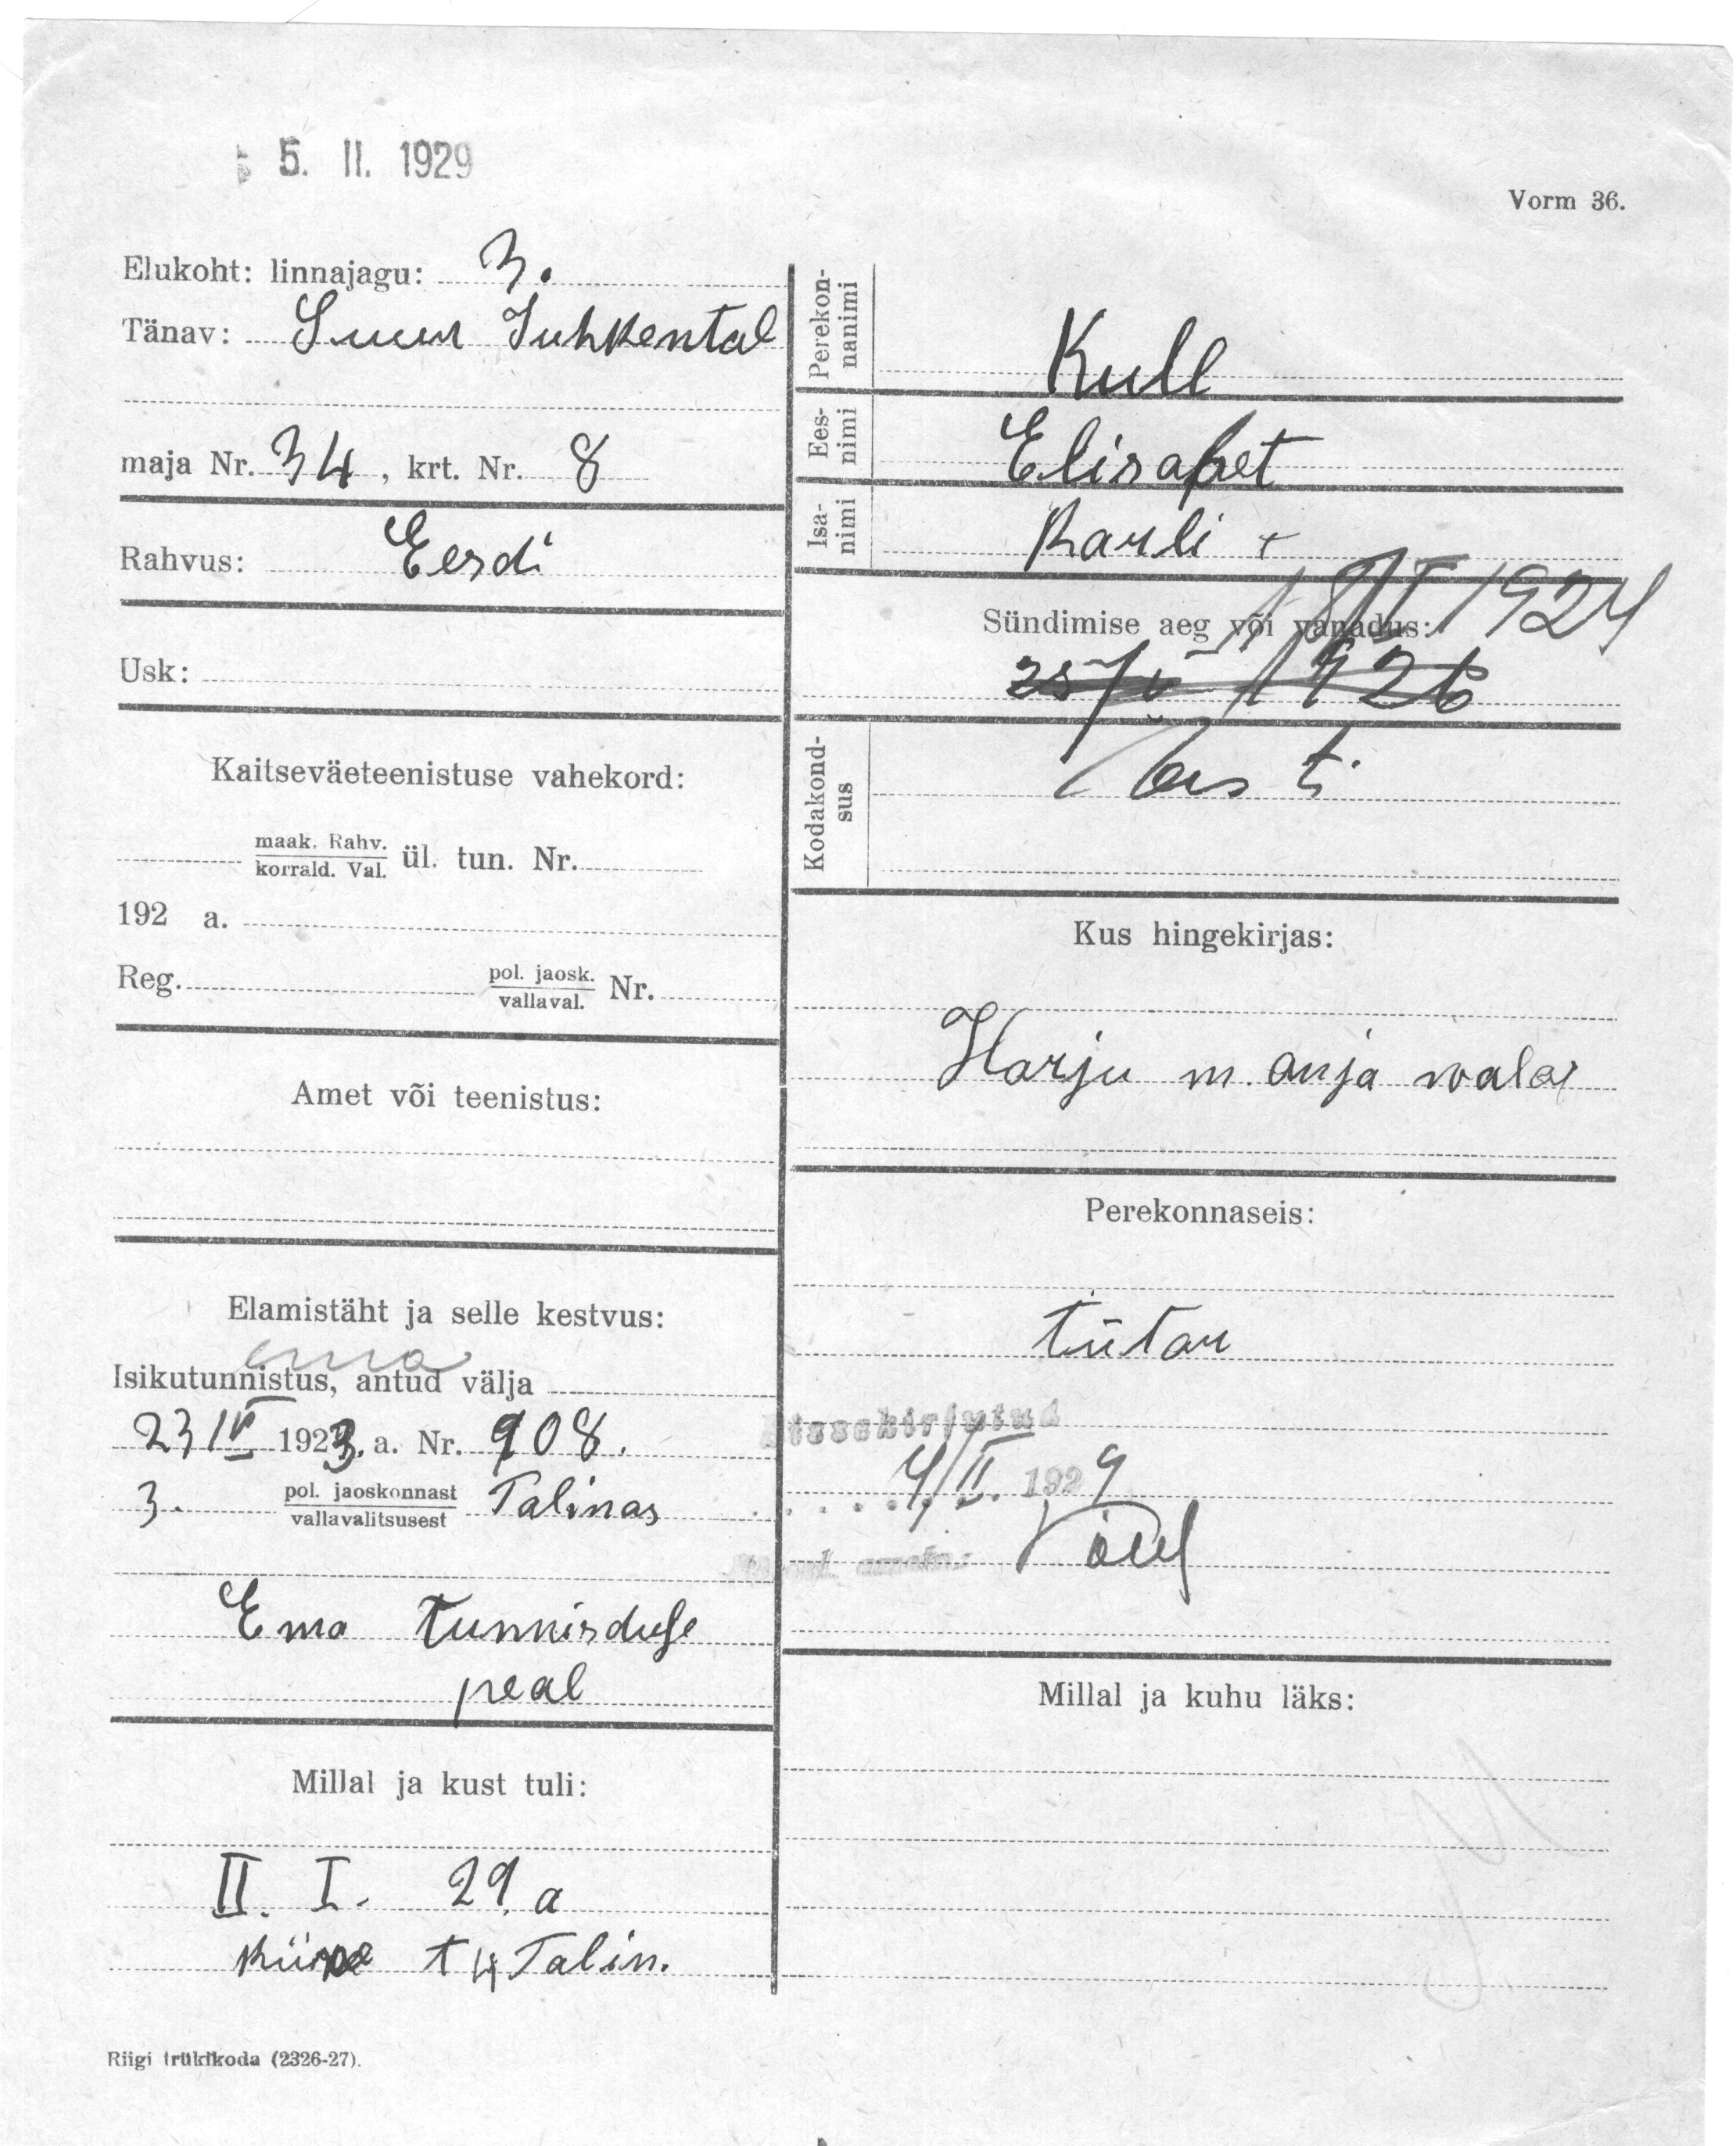 5. II. 1929
Vorm 36.
Elukoht: linnajagu: 3.
Tänav: Suur Juhkental
maja Nr. 34, krt. Nr. 8
Rahvus: Eesdi
Usk:
Kaitseväeteenistuse vahekord:
maak. Rahv.
korrald. Val. ül. tun. Nr.
192 a.
Reg. pol. jaosk.
vallaval. Nr.
Amet või teenistus:
Elamistäht ja selle kestvus:
ema
Isikutunnistus, antud välja
23 IV 1923. a. Nr. 908.
3. pol. jaoskonnast
vallavalitsusest Talinas
Ema tunnisduse
peal
Millal ja kust tuli:
II. I. 29. a
t 4 Talin.
Riigi trükikoda (2326-27).
Perekon-
nanimi
Kull
Ees-
nimi
Elisabet
Isa-
nimi
Karli +
1924
Sündimise aeg või vanadus:
1926
Kodakond-
sus
Eesti
Kus hingekirjas:
Harju m. Anja wala
Perekonnaseis:
tütar
Sissekirjutud
4/II. 1929
Millal ja kuhu läks: